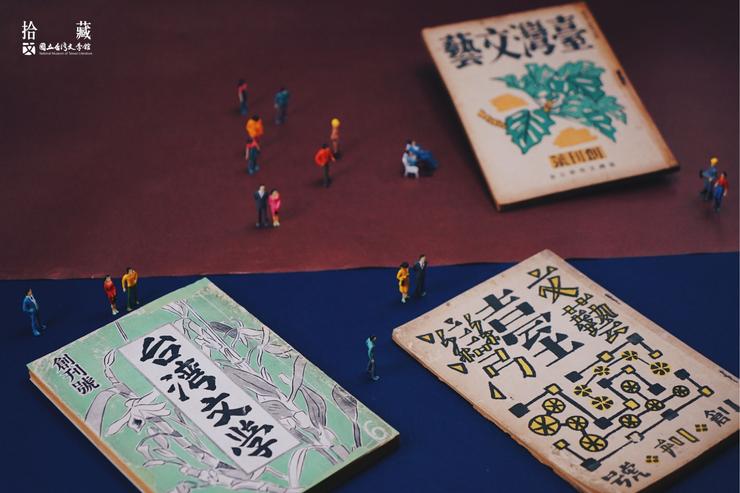 拾藏
國立台灣文學館
National Museum of Taiwan Literature
臺灣文藝
創刊號
創刊號
台湾文学
6
文藝
臺灣
創・刊・號